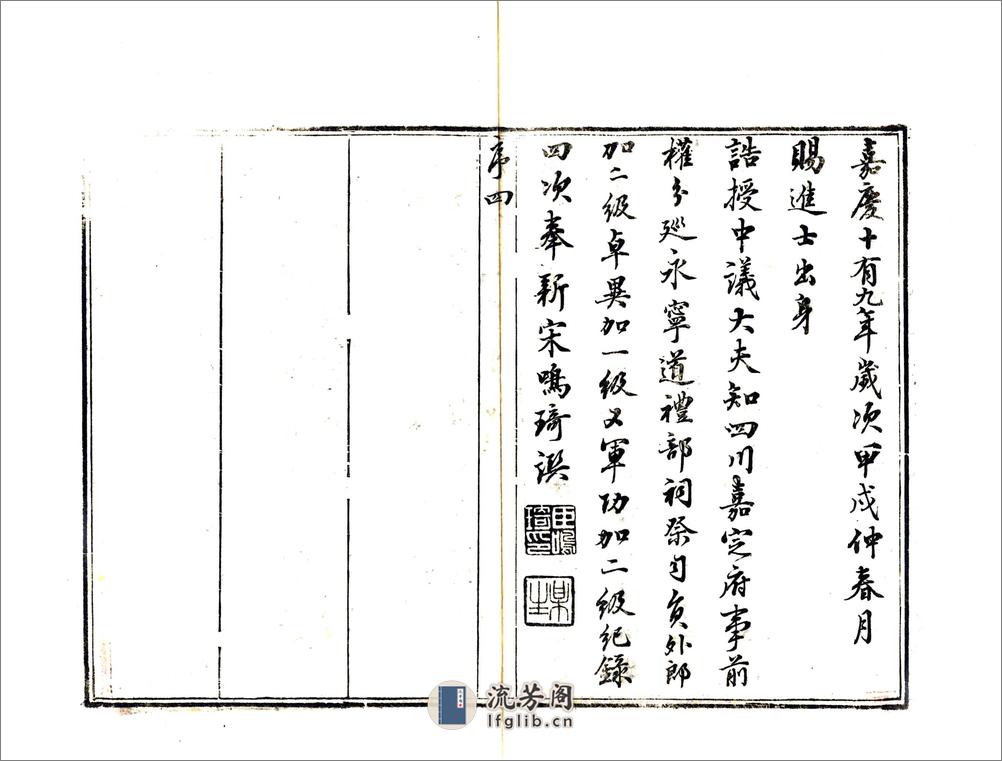 嘉慶十有九年歲次甲戌仲春月
賜進士出身
誥授中議大夫知四川嘉定府事前
權分廵永寧道禮部祠祭司員外郎
加二級卓異加一級又軍功加二級紀錄
四次奉新宋鳴琦譔
序四
流芳阁
lfglib.cn